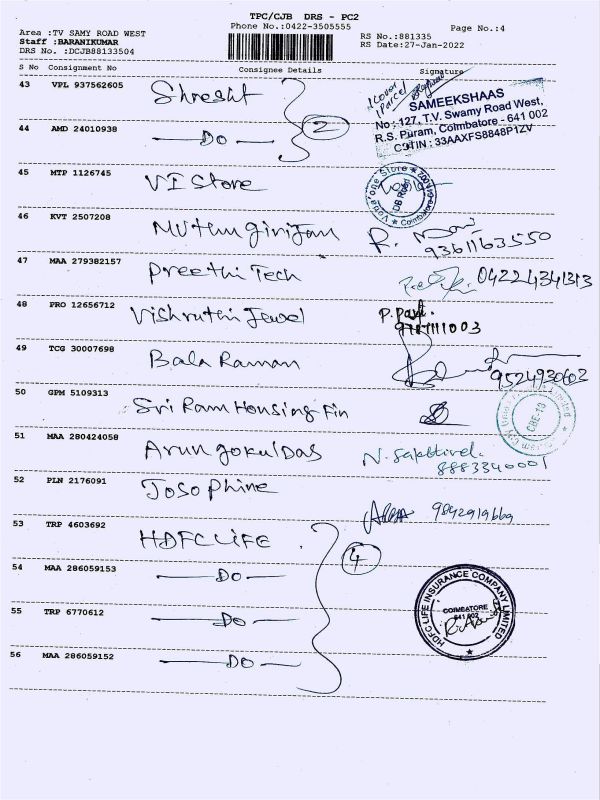 TPC/CJB DRS - PC2
Phone No.:0422-3505555
Page No.:4
Area :TV SAMY ROAD WEST
Staff :BARANIKUMAR
DRS No. :DCJB88133504
RS No.:881335
RS Date:27-Jan-2022
S No Consignment No Consignee Details Signature
43 VPL 937562605 Shresht
1 Cover
1 Parcel
SAMEEKSHAAS
No : 127, T.V. Swamy Road West,
R.S. Puram, Coimbatore - 641 002
GSTIN : 33AAXFS8848P1ZV
44 AMD 24010938 DO 2
45 MTP 1126745 VI Store
46 KVT 2507208 Muthu girijan R. Mani
9361163550
47 MAA 279382157 Preethi Tech 04224341313
48 PRO 12656712 Vishruthi Jewel P. Paul.
49 TCG 30007698 Bala Raman
9524930603
50 GPM 5109313 Sri Ram Housing Fin
CBE-13
51 MAA 280424058 Arun gokul Das N. Sakthivel.
8883340001
52 PLN 2176091 Josophine
9842919669
53 TRP 4603692 HDFC LIFE
54 MAA 286059153 DO 4
55 TRP 6770612 DO
HDFC LIFE INSURANCE COMPANY LIMITED
COIMBATORE
641 002
56 MAA 286059152 DO